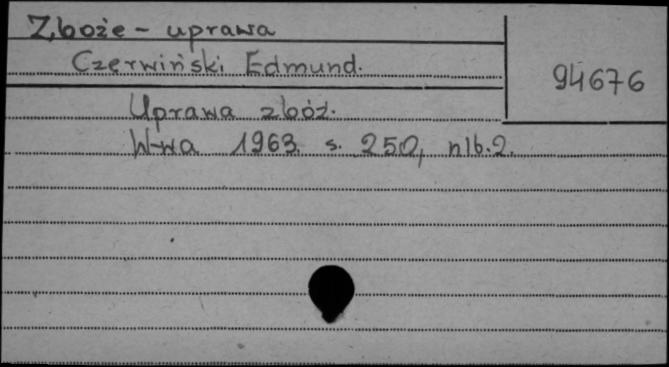 Zboże - uprawa
Czerwiński Edmund.
94676
Uprawa zbóż.
W-wa 1963. s. 250, nlb.2.